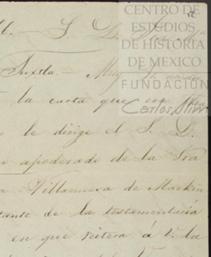 CENTRO DE
ESTUDIOS
DE HISTORIA
DE MEXICO
FUNDACIÓN
Carlos Slim
S. D.
Tuxtla. Muy
la carta que con
le dirige el S. D.
apoderado de la Sra
Villanueva de Mackin
tante de la testamentaría
en que reitera a V. la